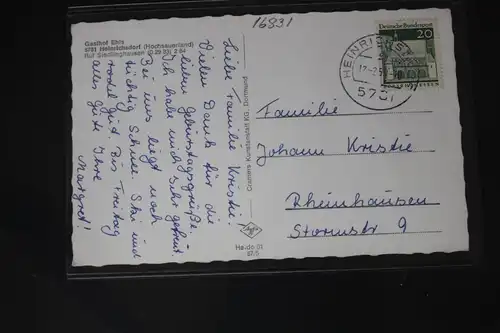 16831
Gasthof Ehrs
5781 Heinrichsdorf (Hochsauerland)
Ruf Siedlinghausen (0 29 83) 2 84
Liebe Familie Kristie!
Vielen Dank für die
lieben Geburtstagsgrüße.
Ich habe mich sehr gefreut.
Bei uns liegt noch
tüchtig Schnee. Ski und
rodel gut. Bis Freitag
alles Gute Ihre
Margret!
Cramers Kunstanstalt KG, Dortmund
Agfa
Ha/do 01
57/5
Deutsche Bundespost
20
HEINRICHS
5781
Familie
Johann Kristie
Rheinhausen
Stormstr 9